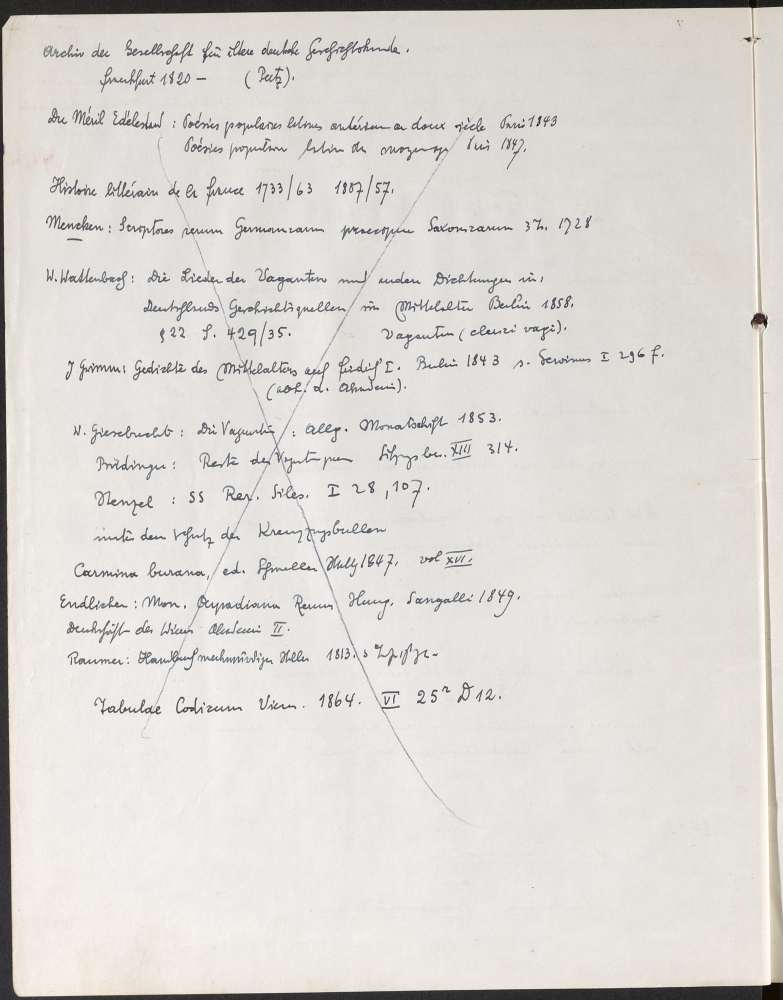 Archiv der Gesellschaft für ältere deutsche Geschichtskunde.
Frankfurt 1820 – (Pertz).
Du Méril Edélestand : Poésies populaires latines antérieures au douzième siècle Paris 1843
Poésies populaires latines du moyen age Paris 1847.
Histoire littéraire de la France 1733/63 1807/57.
Mencken : Scriptores rerum Germanicarum praecipue Saxonicarum 3 1728
W. Wattenbach : Die Lieder der Vaganten und andere Dichtungen in,
Deutschlands Geschichtsquellen im Mittelalter Berlin 1858.
§ 22 S. 429/35. Vaganten (clerici vagi).
J Grimm : Gedichte des Mittelalters auf Friedrich I. Berlin 1843 s. Gervinus I 296 f.
(abh. d. Akademie).
W. Giesebrecht : Die Vaganten : Allg. Monatschrift 1853.
Büdinger : Reste der Sitzgsber. XIII 314.
Stenzel : SS Rer. Siles. I 28, 107.
unter dem Schutz der Kreuzzugsbullen
Carmina burana, ed. Schmeller Stuttg 1847. vol XVI.
Endlicher : Mon. Arpadiana Rerum Hung. Sangalli 1849.
Denkschrift der Wiener Akademie II.
Raumer : Handbuch merkwürdiger Stellen 1813. s
Tabulae Codicum Vien. 1864. VI 25 D 12.